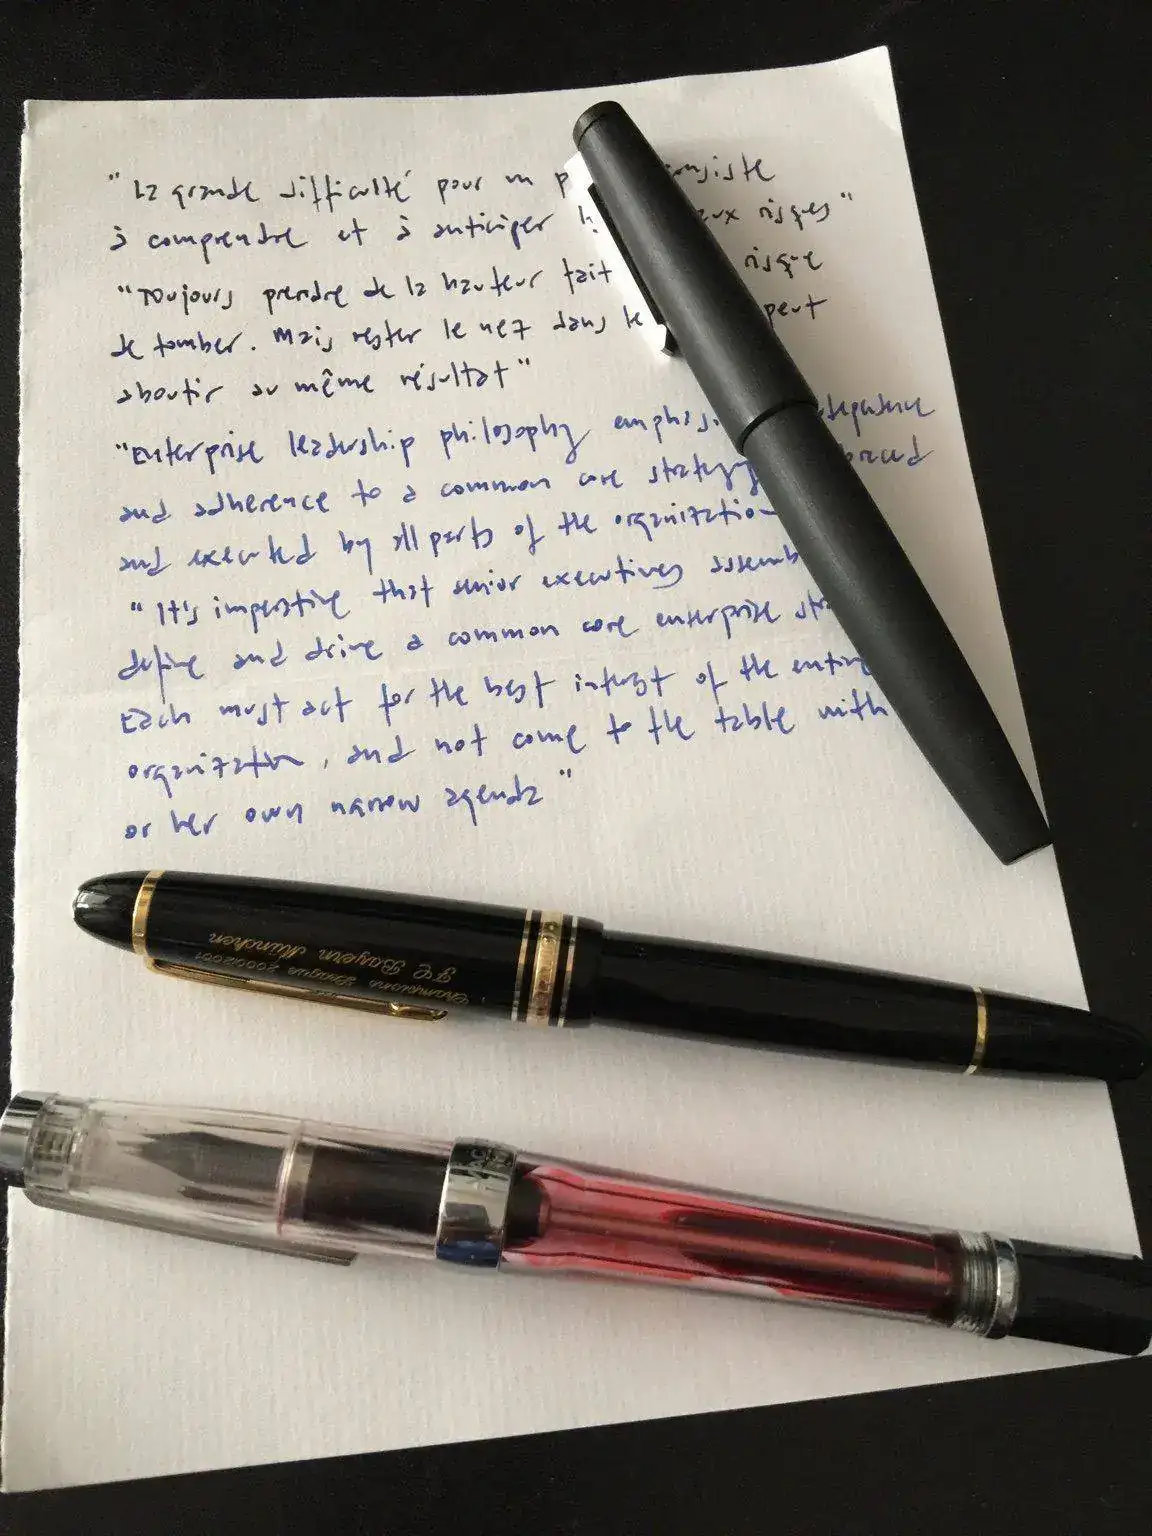 "La grande difficulté pour un p consiste
à comprendre et à anticiper aux risques"
"Toujours prendre de la hauteur fait risque
de tomber. Mais rester le nez dans le peut
aboutir au même résultat"
"Enterprise leadership philosophy
and adherence to a common core strategy
and executed by all parts of the organization
"It's imperative that senior executives
define and drive a common core enterprise
Each must act for the best interest of the entire
organization, and not come to the table with
or her own narrow agenda"
FC Bayern München
Champions League 2000/2001